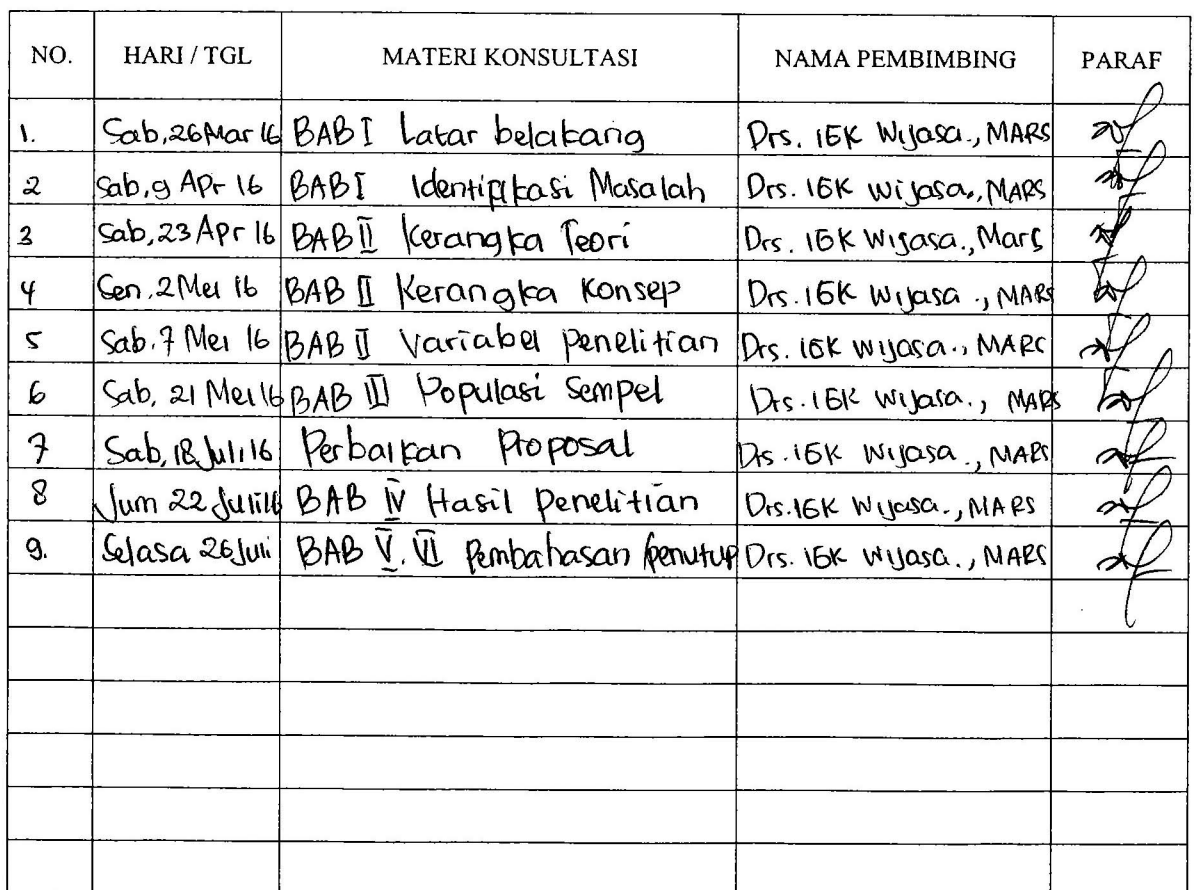 NO. HARI / TGL MATERI KONSULTASI NAMA PEMBIMBING PARAF
1. Sab, 26 Mar 16 BAB I Latar belakang Drs. IGK Wijasa., MARS
2 Sab, 9 Apr 16 BAB I Identifikasi Masalah Drs. IGK Wijasa., MARS
3 Sab, 23 Apr 16 BAB II Kerangka Teori Drs. IGK Wijasa., Mars
4 Sen, 2 Mei 16 BAB II Kerangka Konsep Drs. IGK Wijasa ., MARS
5 Sab. 7 Mei 16 BAB II Variabel Penelitian Drs. IGK Wijasa., MARS
6 Sab, 21 Mei 16 BAB III Populasi Sempel Drs. IGK Wijasa., MARS
7 Sab, 18 Juli 16 Perbaikan Proposal Drs. IGK Wijasa ., MARS
8 Jum 22 Juli 16 BAB IV Hasil Penelitian Drs. IGK Wijasa., MARS
9. Selasa 26 Juli BAB V. VI Pembahasan penutup Drs. IGK Wijasa., MARS